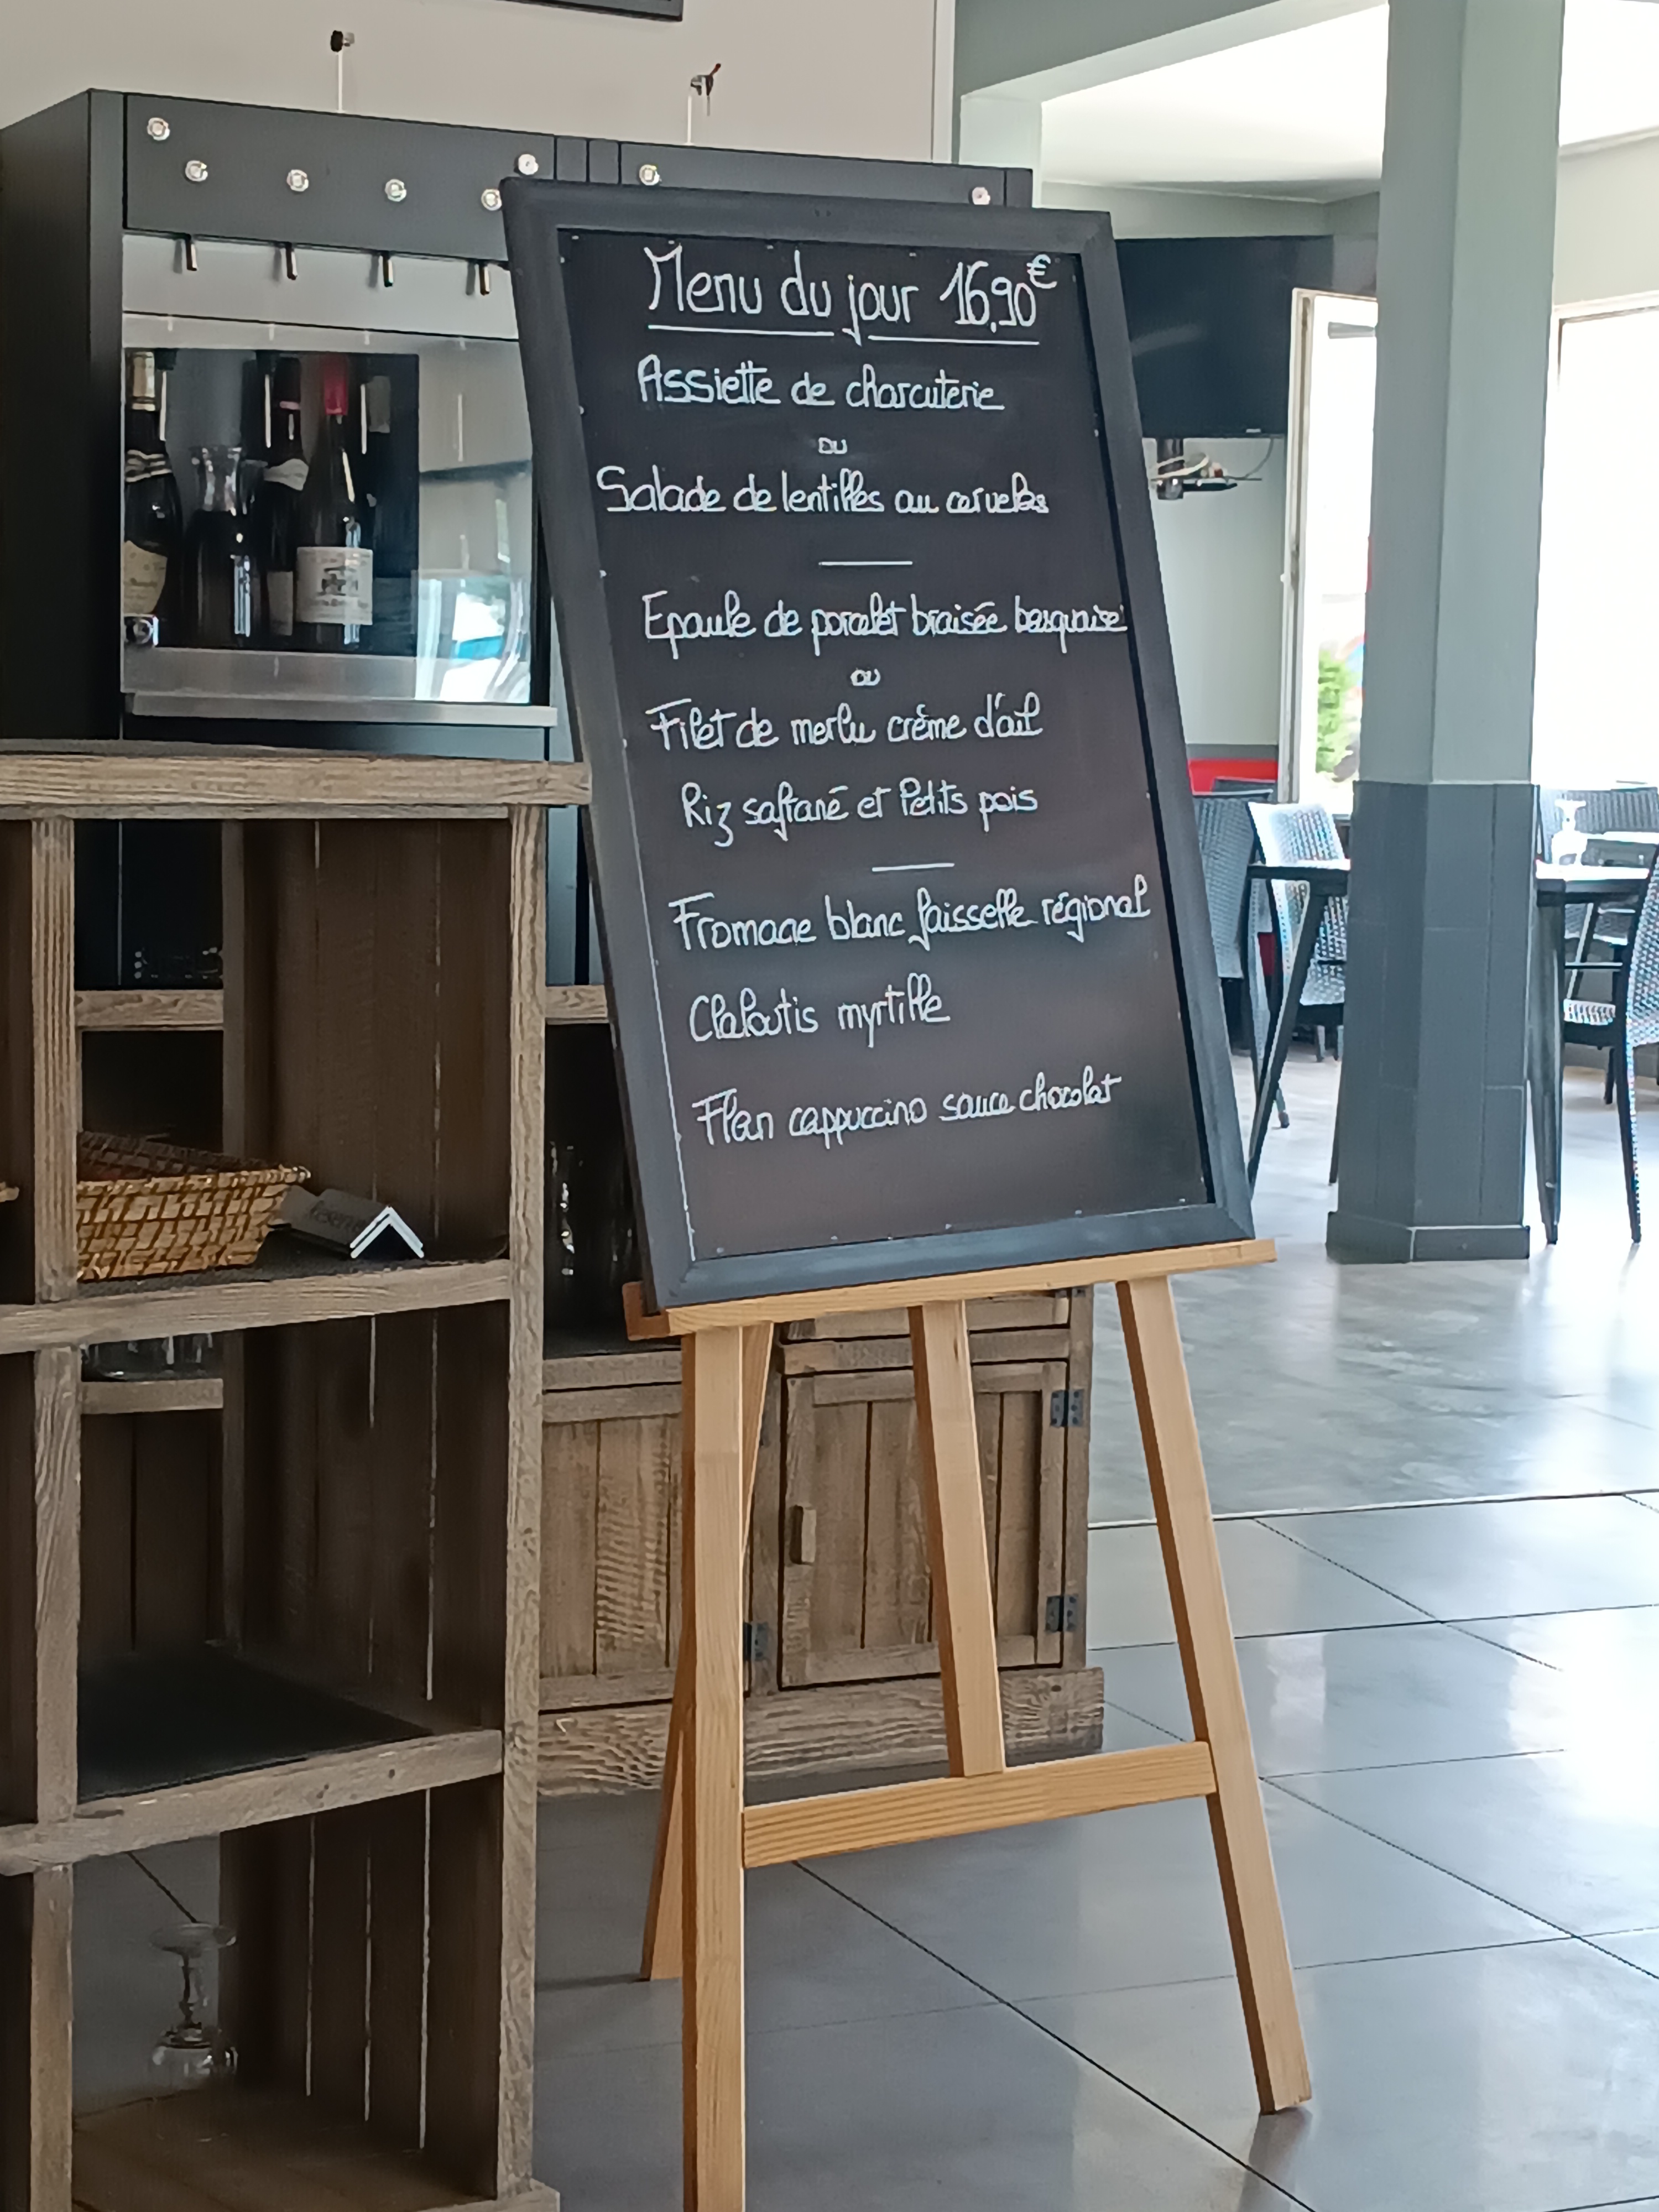 Menu du jour 16,90€
Assiette de charcuterie
ou
Salade de lentilles au cervelas
Epaule de porcelet braisée basquaise
ou
Filet de merlu crème d'ail
Riz safrané et Petits pois
Fromage blanc faisselle régional
Clafoutis myrtille
Flan cappuccino sauce chocolat